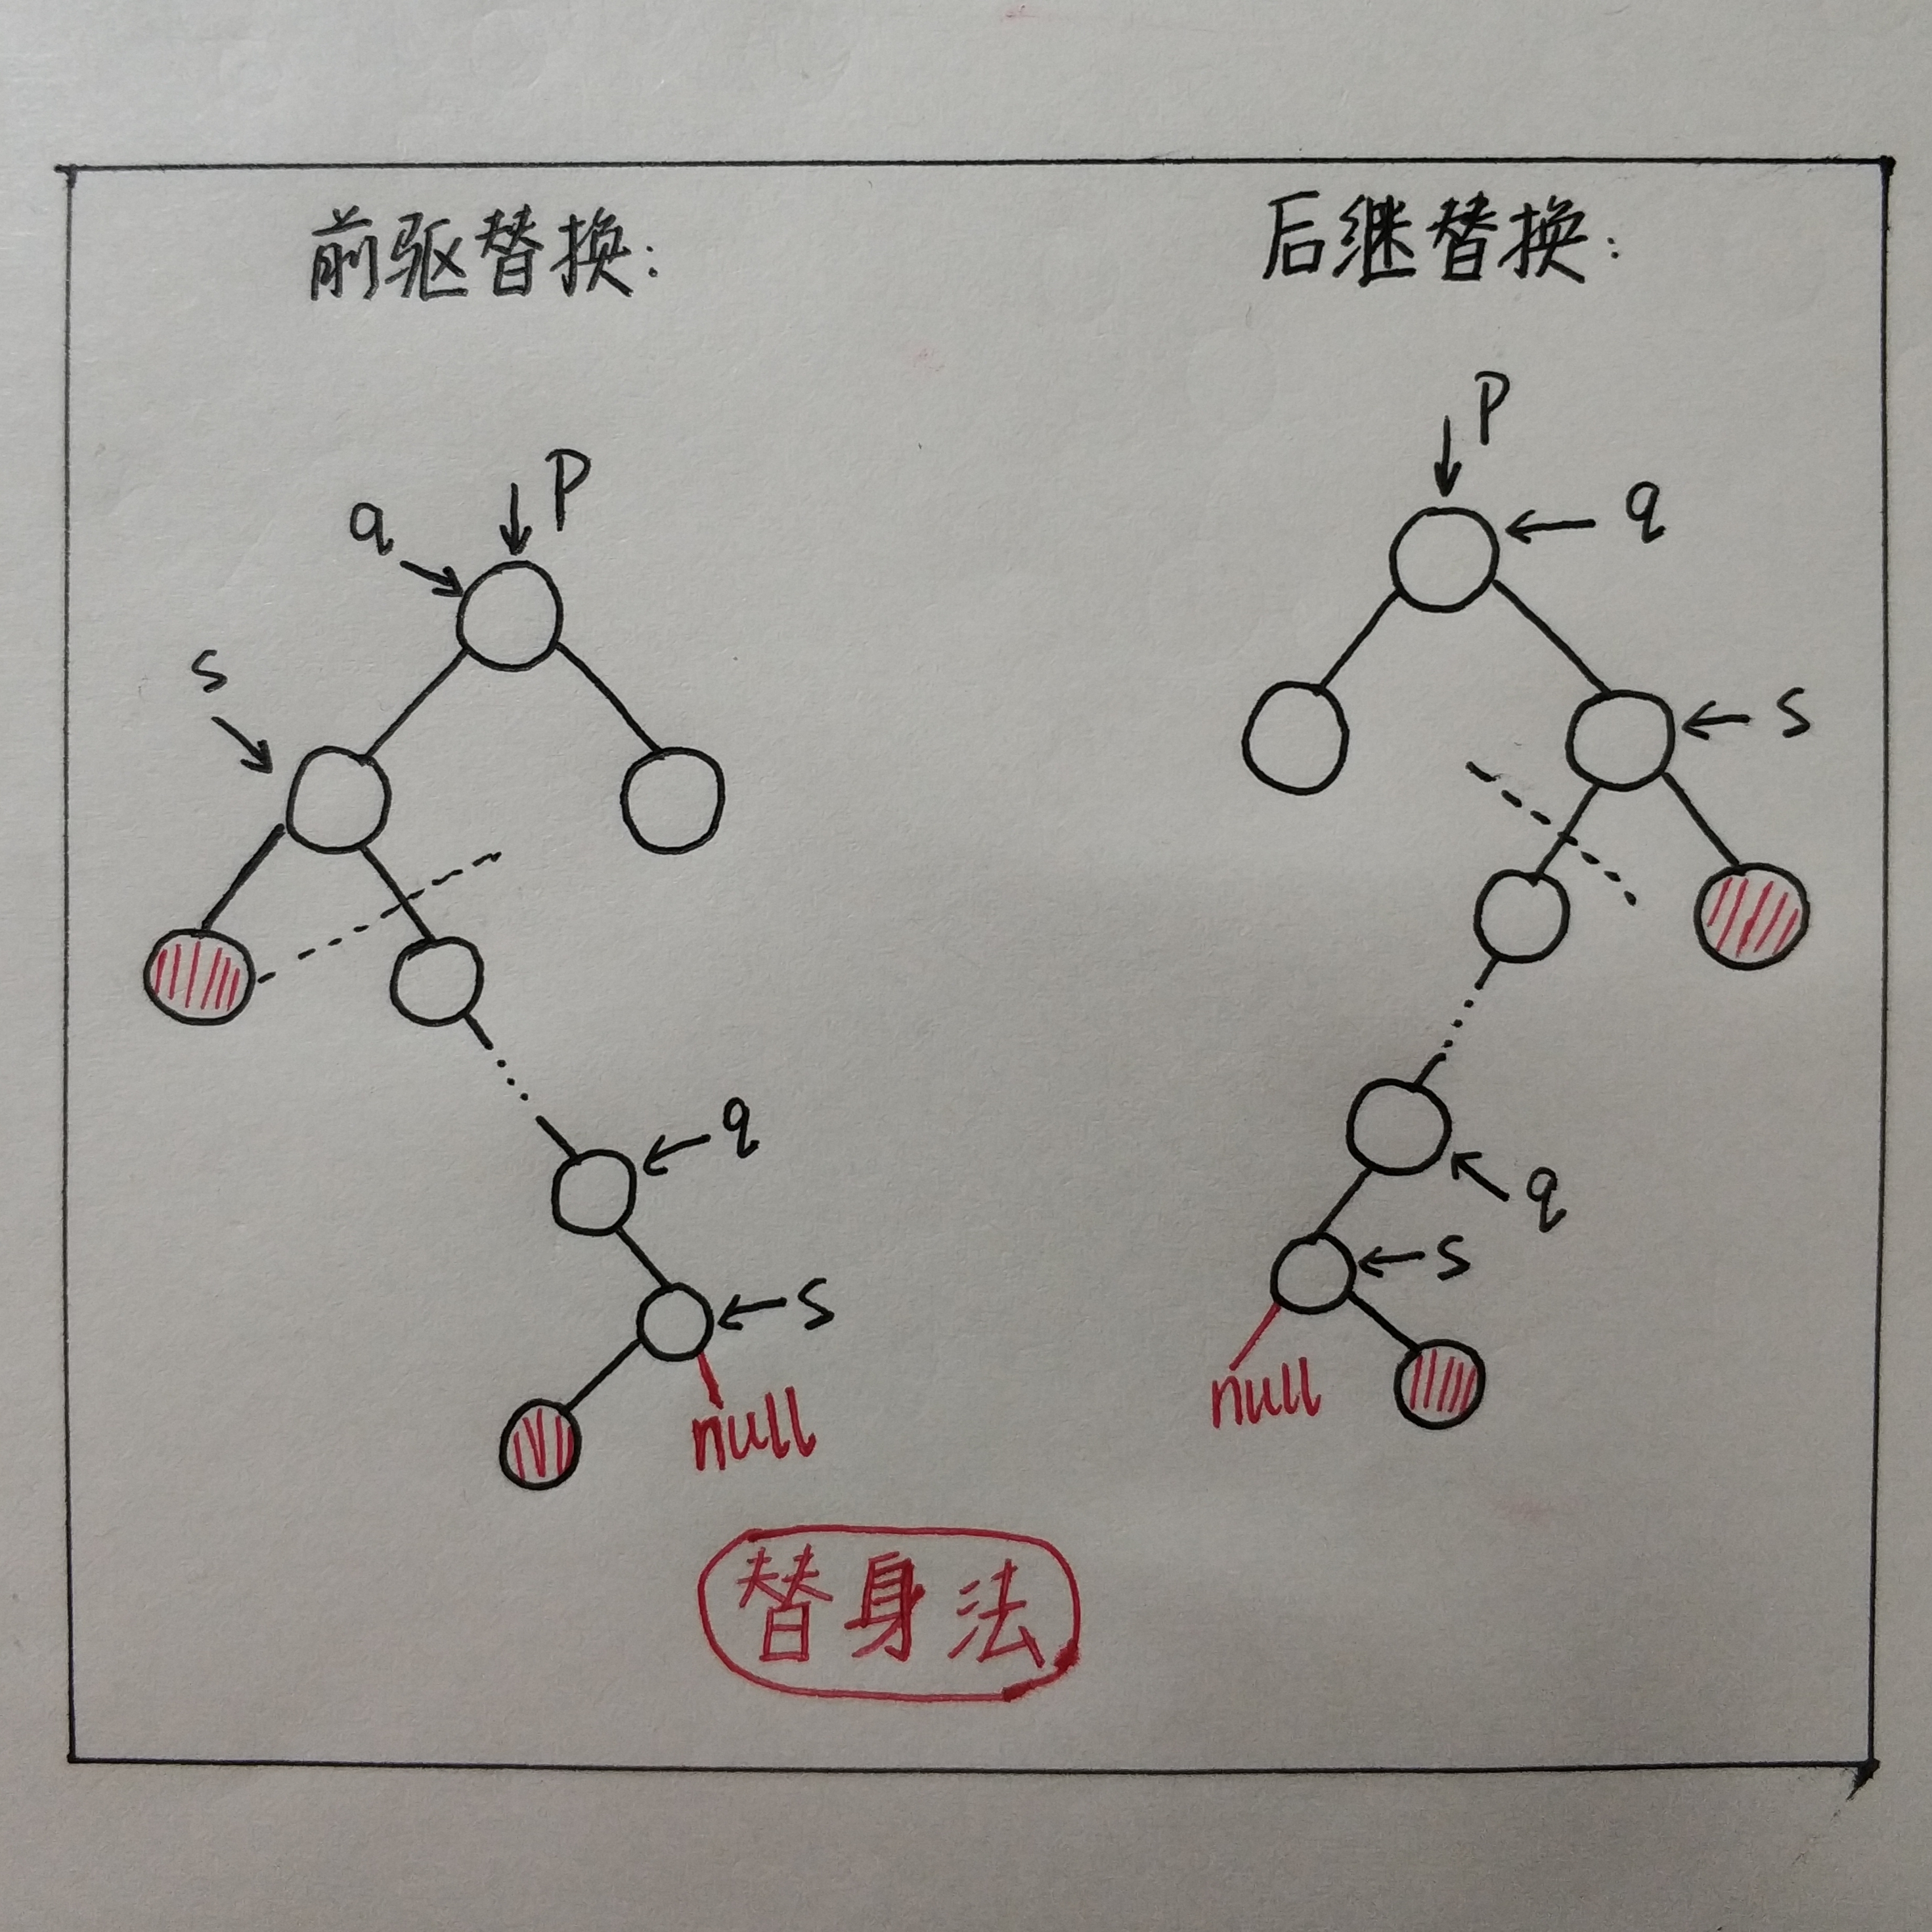 前驱替换:
后继替换:
P
q
s
q
s
null
P
q
s
q
s
null
替身法